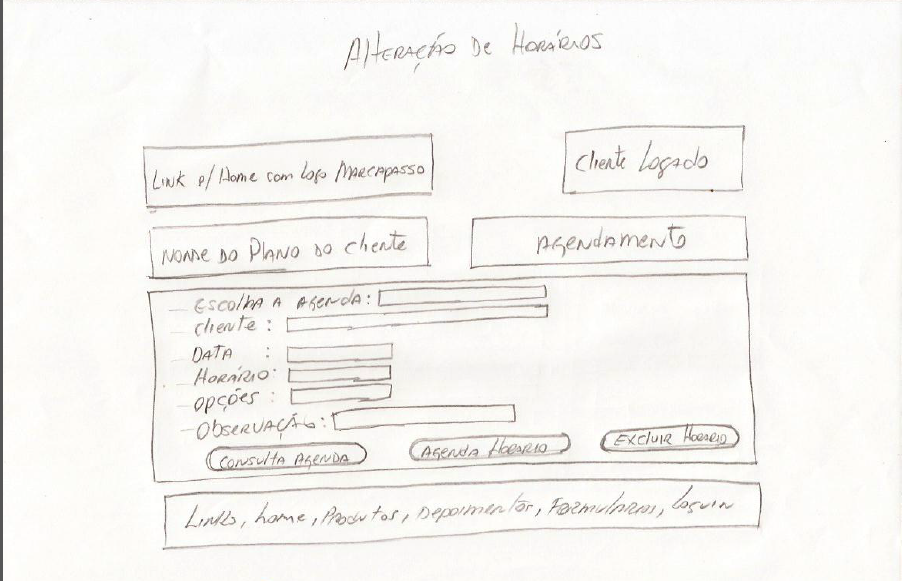 Alteração de Horários
Link p/ Home com Logo Marcapasso
Cliente Logado
Nome do Plano do Cliente
Agendamento
Escolha a agenda:
Cliente:
Data :
Horário:
Opções :
Observação:
Consulta Agenda
Agenda Horario
Excluir Horario
Links, home, Produtos, Depoimentos, Formularios, Loguin